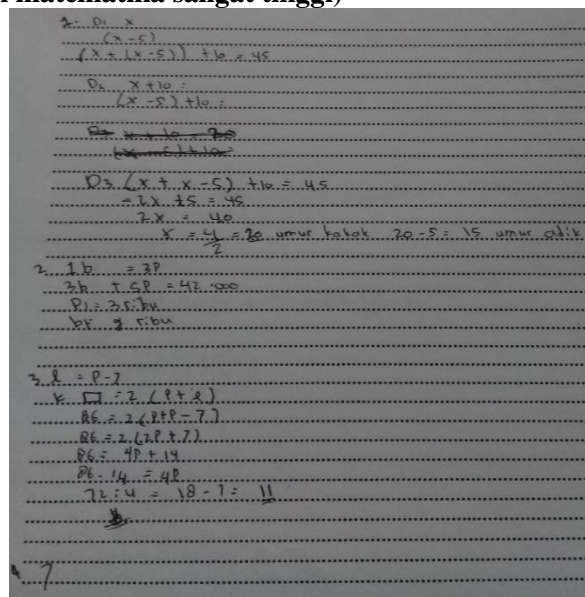 matematika sangat tinggi)
1. D1 x
(x-5)
(x + (x-5)) + 10 = 45
D2 x + 10 =
(x-5) + 10 =
D3 (x + x - 5) + 10 = 45
= 2x + 5 = 45
2x = 40
x = 4/2 = 20 umur kakak 20-5 = 15 umur adik
2. 1b = 3P
3b + 5P = 42.000
P1 = 3 ribu
br 9 ribu
3 l = P-7
k □ = 2 (P+l)
86 = 2 (P+P-7)
86 = 2 (2P+7)
86 = 4P + 14
86 - 14 = 4P
72 : 4 = 18 - 7 = 11
4. 7